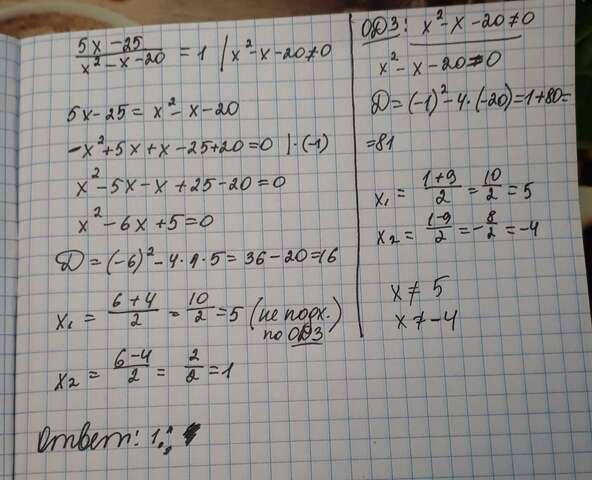 (5x-25)/(x²-x-20) = 1 | x²-x-20≠0
5x-25 = x²-x-20
-x²+5x+x-25+20=0 |·(-1)
x²-5x-x+25-20=0
x²-6x+5=0
D=(-6)²-4·1·5=36-20=16
x₁ = (6+4)/2 = 10/2 = 5 (не подх. по ОДЗ)
x₂ = (6-4)/2 = 2/2 = 1
Ответ: 1.
ОДЗ: x²-x-20≠0
x²-x-20=0
D=(-1)²-4·(-20)=1+80=
=81
x₁ = (1+9)/2 = 10/2 = 5
x₂ = (1-9)/2 = -8/2 = -4
x≠5
x≠-4